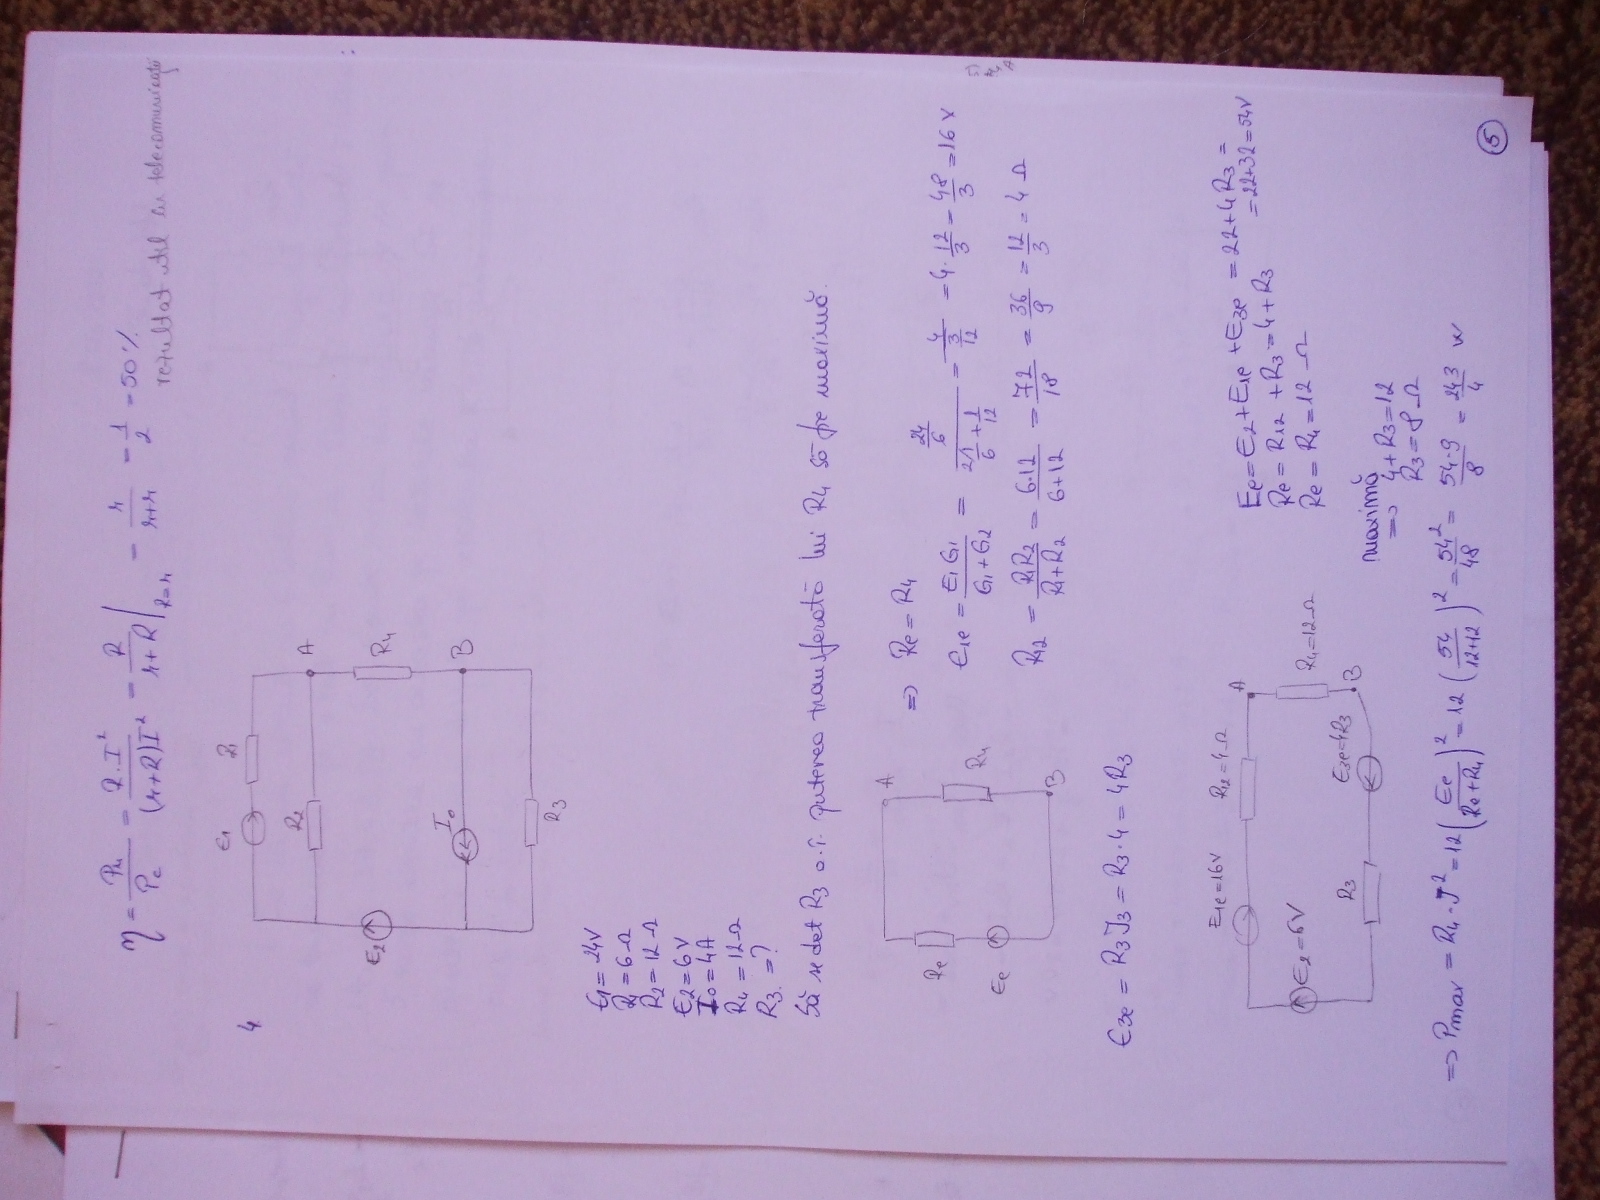 η = Pu/Pc = R·I²/(r+R)I² = R/(r+R)|R=r = r/(r+r) = 1/2 = 50%
rezultat util în telecomunicații
4.
E1 R1
R2
A
E2
R4
I0
B
R3
E1 = 24V
R1 = 6Ω
R2 = 12Ω
E2 = 6V
I0 = 4A
R4 = 12Ω
R3 = ?
Să se det R3 a.î. puterea transferată lui R4 să fie maximă.
A
Re
R4
Ee
B
=> Re = R4
E1e = E1G1/(G1+G2) = (24/6)/(2)1/6 + 1/12) = 4/(3/12) = 4·12/3 = 48/3 = 16 V
R12 = R1R2/(R1+R2) = 6·12/(6+12) = 72/18 = 36/9 = 12/3 = 4 Ω
E3e = R3J3 = R3·4 = 4R3
E1e=16V R12=4Ω
A
E2=6V
R4=12Ω
R3
E3e=4R3
B
Ee = E2 + E1e + E3e = 22+4R3 =
= 22+32 = 54V
Re = R12 + R3 = 4+R3
Re = R4 = 12 Ω
maximă
=> 4+R3 = 12
R3 = 8Ω
=> Pmax = R4·J² = 12(Ee/(Re+R4))² = 12(54/(12+12))² = 54²/48 = 54·9/8 = 243/4 W
5